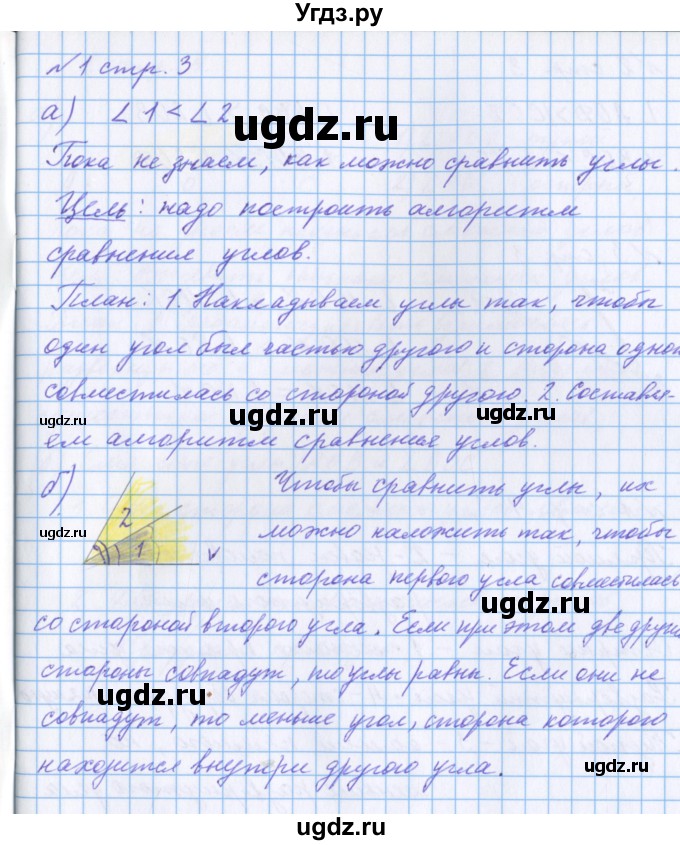 Угдз.ру
№1 стр. 3
а) ∠1 < ∠2
ugdz.ru
Пока не знаем, как можно сравнить углы.
Цель: надо построить алгоритм
ugdz.ru
сравнения углов.
План: 1. Накладываем углы так, чтобы
один угол был частью другого и сторона одной
совместилась со стороной другого. 2. Составля-
ugdz.ru
ugdz.ru
ugdz.ru
ем алгоритм сравненья углов.
б) 2 1 v
Чтобы сравнить углы, их
ugdz.ru
ugdz.ru
можно наложить так, чтобы
сторона первого угла совместилась
ugdz.ru
со стороной второго угла. Если при этом две други
стороны совпадут, то углы равны. Если они не
ugdz.ru
совпадут, то меньше угол, сторона которого
находится внутри другого угла.
ugdz.ru
ugdz.ru
ugdz.ru